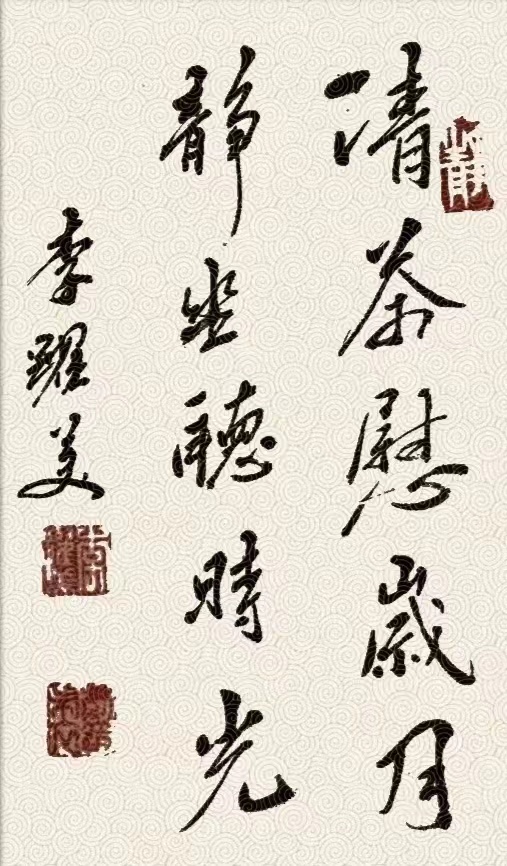 清茶慰歲月
靜坐聽時光
李躍美